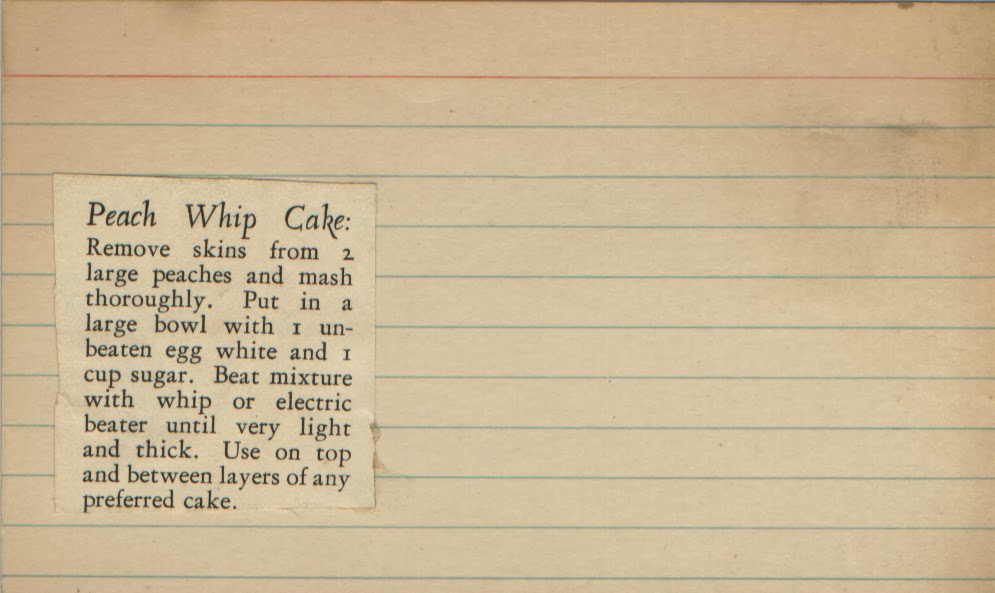 Peach Whip Cake:
Remove skins from 2
large peaches and mash
thoroughly. Put in a
large bowl with 1 un-
beaten egg white and 1
cup sugar. Beat mixture
with whip or electric
beater until very light
and thick. Use on top
and between layers of any
preferred cake.